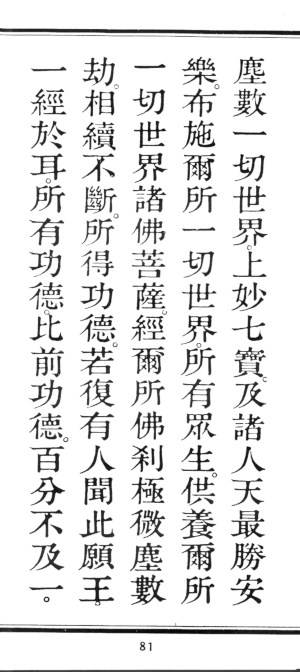 塵數一切世界。上妙七寶。及諸人天最勝安
樂。布施爾所一切世界。所有眾生。供養爾所
一切世界諸佛菩薩。經爾所佛剎極微塵數
劫。相續不斷。所得功德。若復有人聞此願王。
一經於耳。所有功德。比前功德。百分不及一。
81